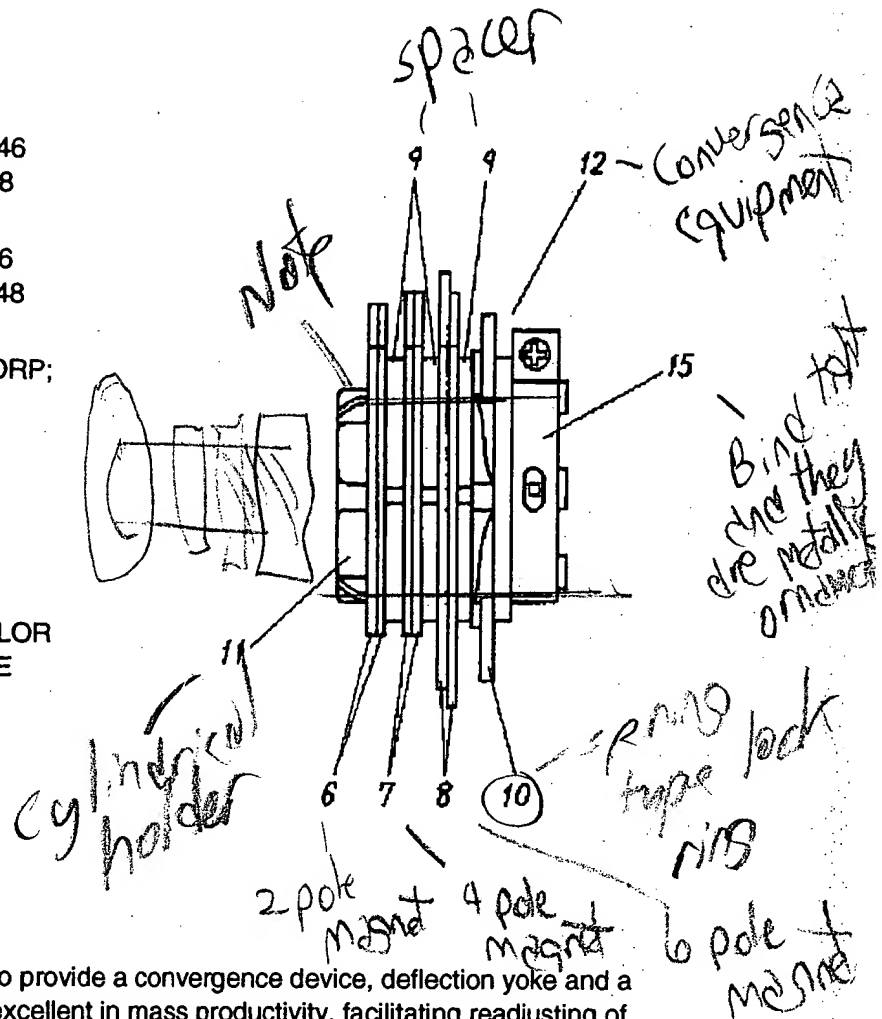 spacer
46
8
9 9 12 ~ Convergence
equipment
6
48
Note
ORP;
15
Bind
and they
are metallic
LOR
E
11
cylindrical
holder
6 7 8 10
spring
type lock
ring
2 pole
magnet
4 pole
magnet
6 pole
magnet
o provide a convergence device, deflection yoke and a
excellent in mass productivity, facilitating readjusting of